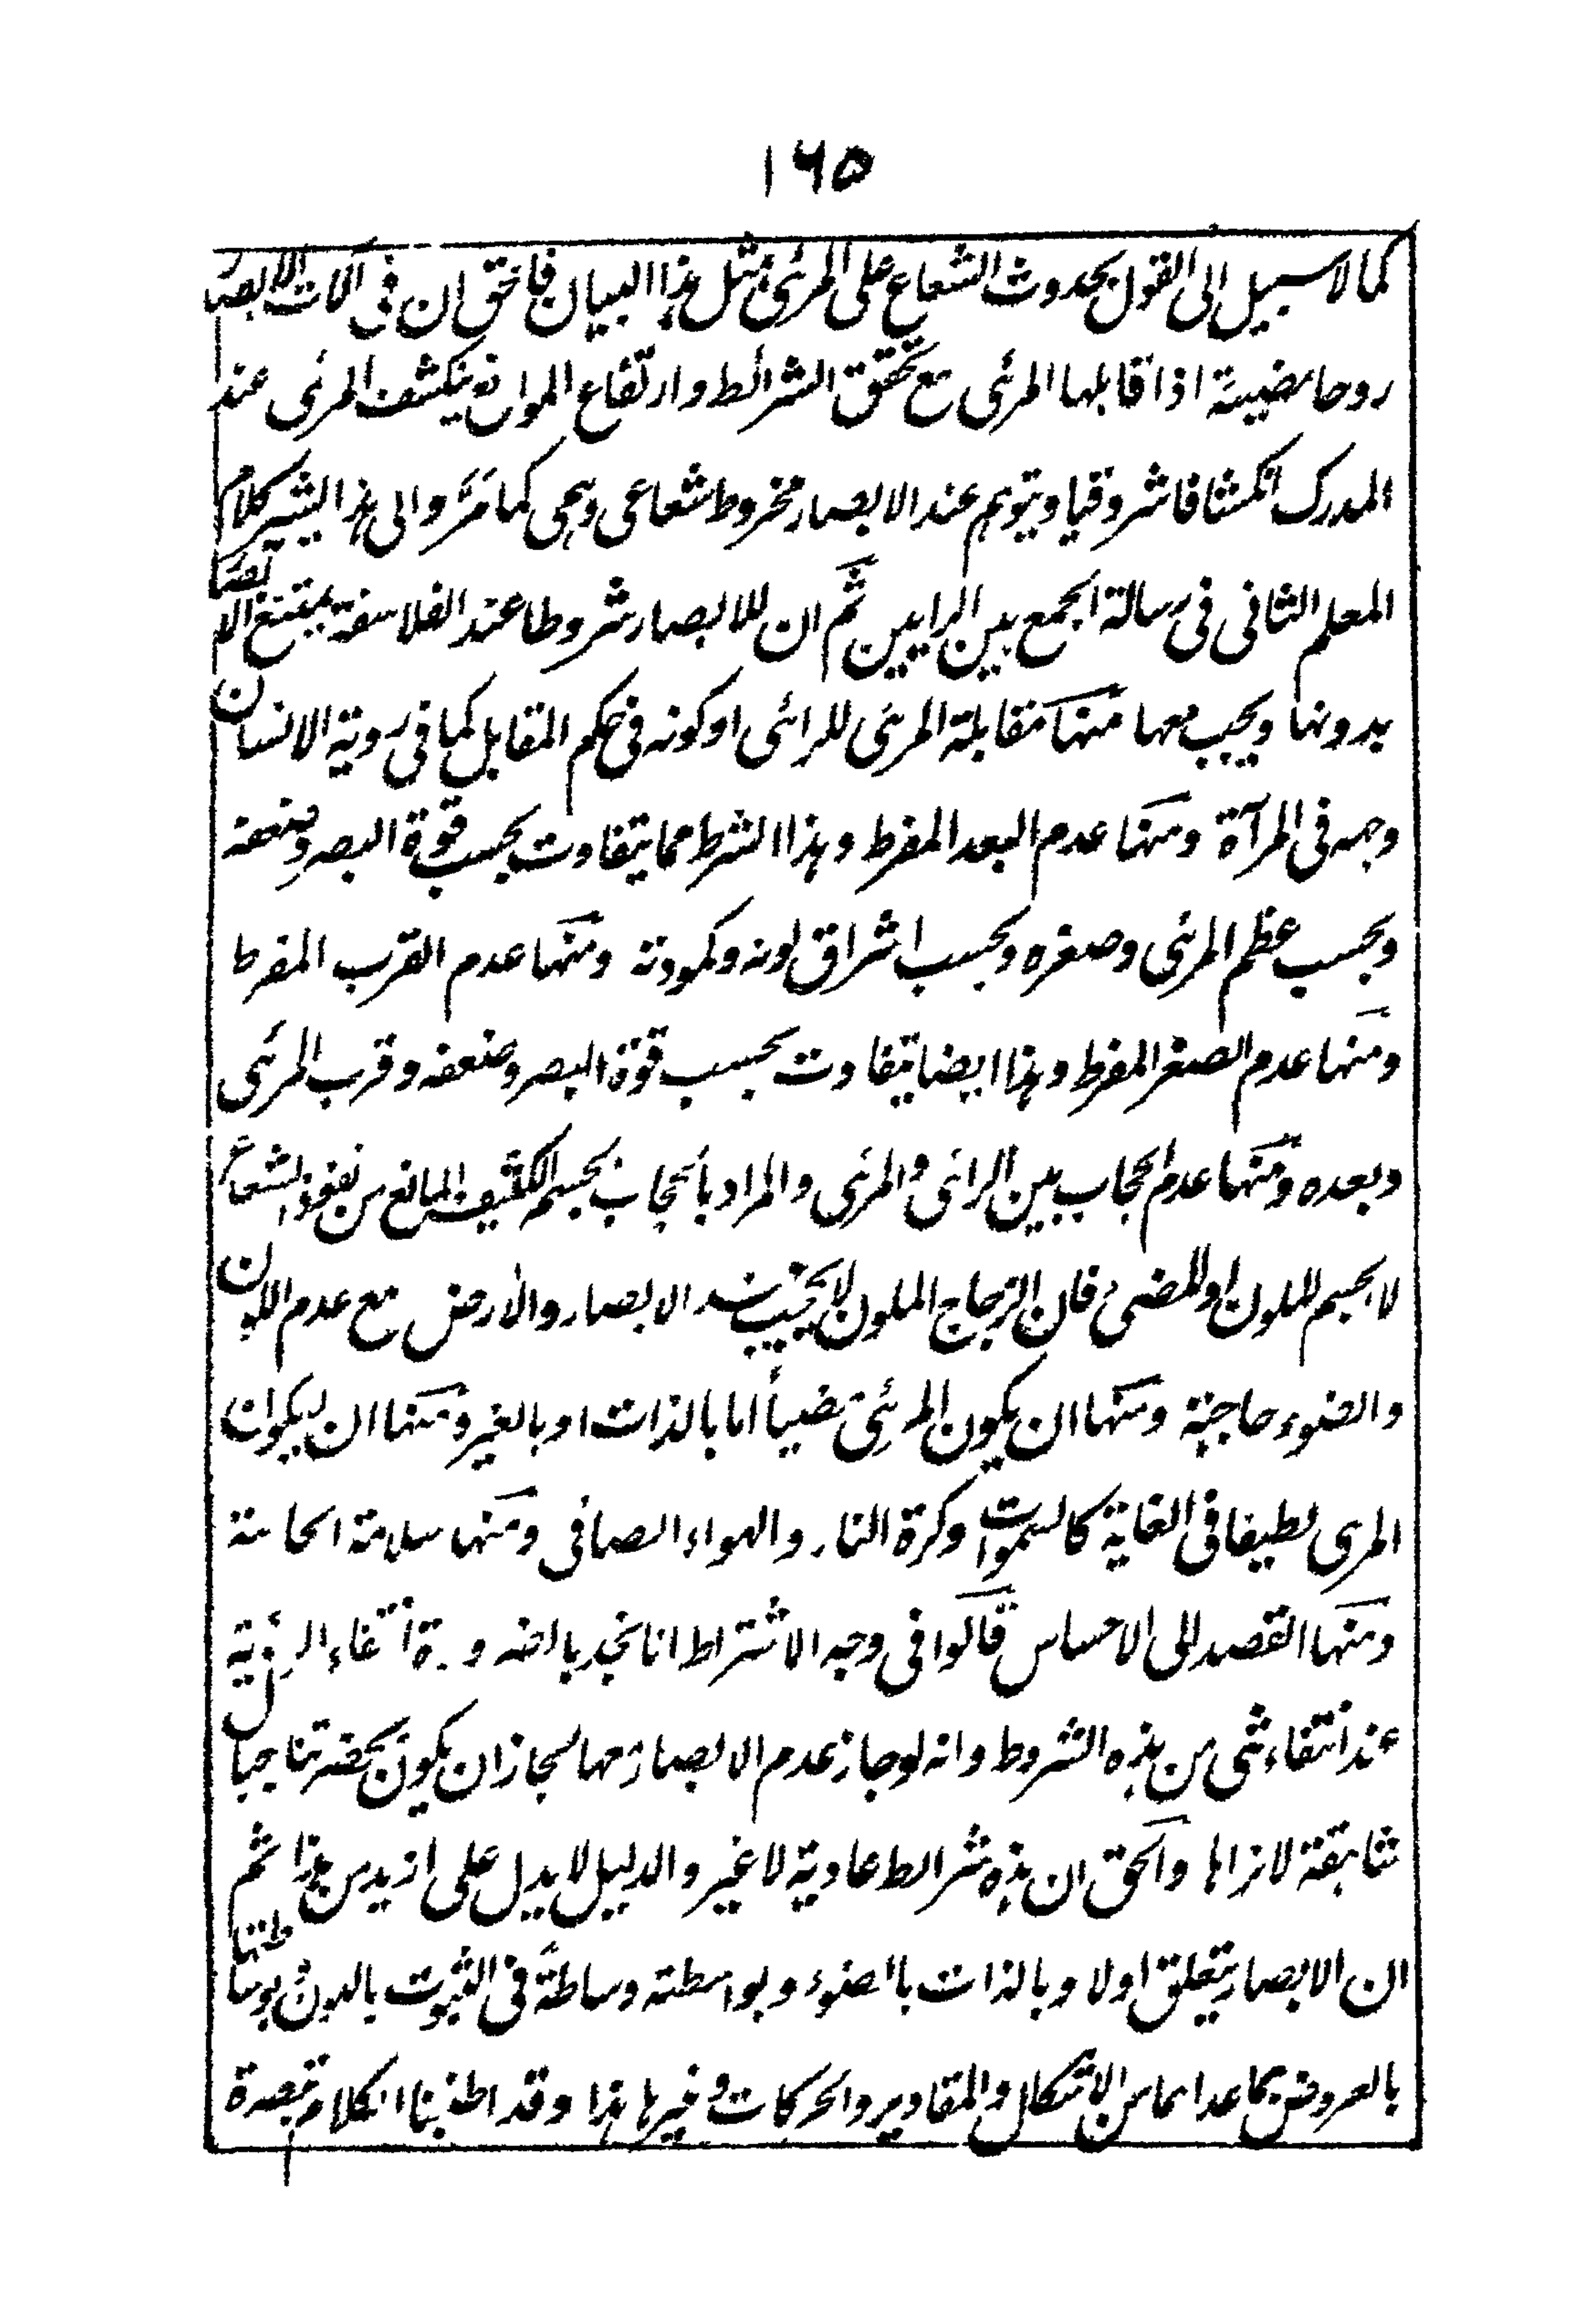 ١٦٥
كما لا سبيل الى القول بحدوث الشعاع على المرئى بمثل هذا البيان فالحق ان فى آلات الابصار
روحا مضيئة اذا قابلها المرئى مع تحقق الشرائط وارتفاع الموانع ينكشف المرئى عند
المدرك انكشافا شروقيا ويتوهم عند الابصار مخروط شعاعى وهمى كما مر والى هذا يشير كلام
المعلم الثانى فى رسالة الجمع بين الرايين ثم ان للابصار شروطا عند الفلاسفة يمتنع الابصار
بدونها ويجب معها منها مقابلة المرئى للرائى او كونه فى حكم المقابل كما فى روية الانسان
وجهه فى المرآة ومنها عدم البعد المفرط وهذا الشرط مما يتفاوت بحسب قوة البصر وضعفه
وبحسب عظم المرئى وصغره وبحسب اشراق لونه وكمودته ومنها عدم القرب المفرط
ومنها عدم الصغر المفرط وهذا ايضا يتفاوت بحسب قوة البصر وضعفه وقرب المرئى
وبعده ومنها عدم الحجاب بين الرائى والمرئى والمراد بالحجاب الجسم الكثيف المانع من نفوذ الشعاع
لا الجسم الملون او المضىء فان الزجاج الملون لا يحجب عند الابصار والارض مع عدم اللون
والضوء حاجبة ومنها ان يكون المرئى مضيأ اما بالذات او بالغير ومنها ان لا يكون
المرى لطيفا فى الغاية كالسموات وكرة النار والهواء الصافى ومنها سلامة الحاسة
ومنها القصد الى الاحساس قالوا فى وجه الاشتراط انا نجد بالضرورة انتفاء الرؤية
عند انتفاء شى من هذه الشروط وانه لو جاز عدم الابصار معها لجاز ان يكون بحضرتنا جبال
شاهقة لا نراها والحق ان هذه شرائط عادية لا غير والدليل لا يدل على ازيد من هذا ثم
ان الابصار يتعلق اولا وبالذات بالضوء وبواسطته وساطة فى الثبوت باللون بوساطتها
بالعروض بما عداهما من الاشكال والمقادير والحركات وغيرها هذا وقد اطنبنا الكلام تبصرة